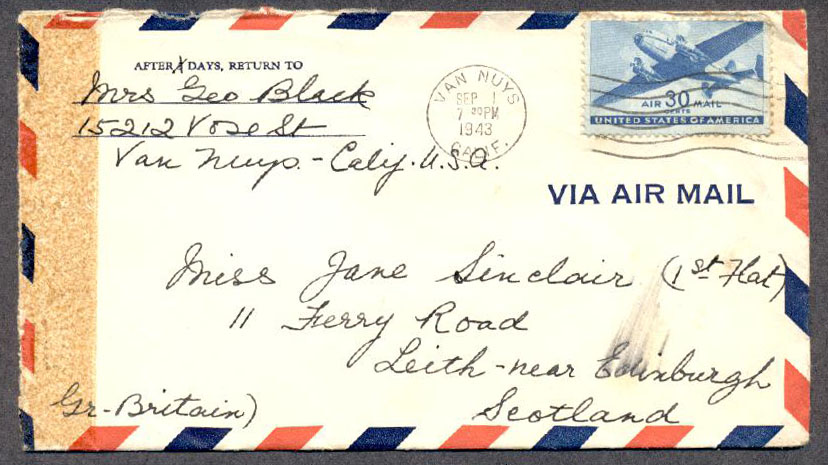 AFTER DAYS, RETURN TO
Mrs Geo Black
15212 Vose St
Van Nuys. - Calif. U.S.A.
VAN NUYS
SEP 1
7 30PM
1943
CALIF.
AIR 30 MAIL
CENTS
UNITED STATES OF AMERICA
VIA AIR MAIL
Miss Jane Sinclair (1st Flat)
11 Ferry Road
Leith - near Edinburgh
Gr-Britain) Scotland